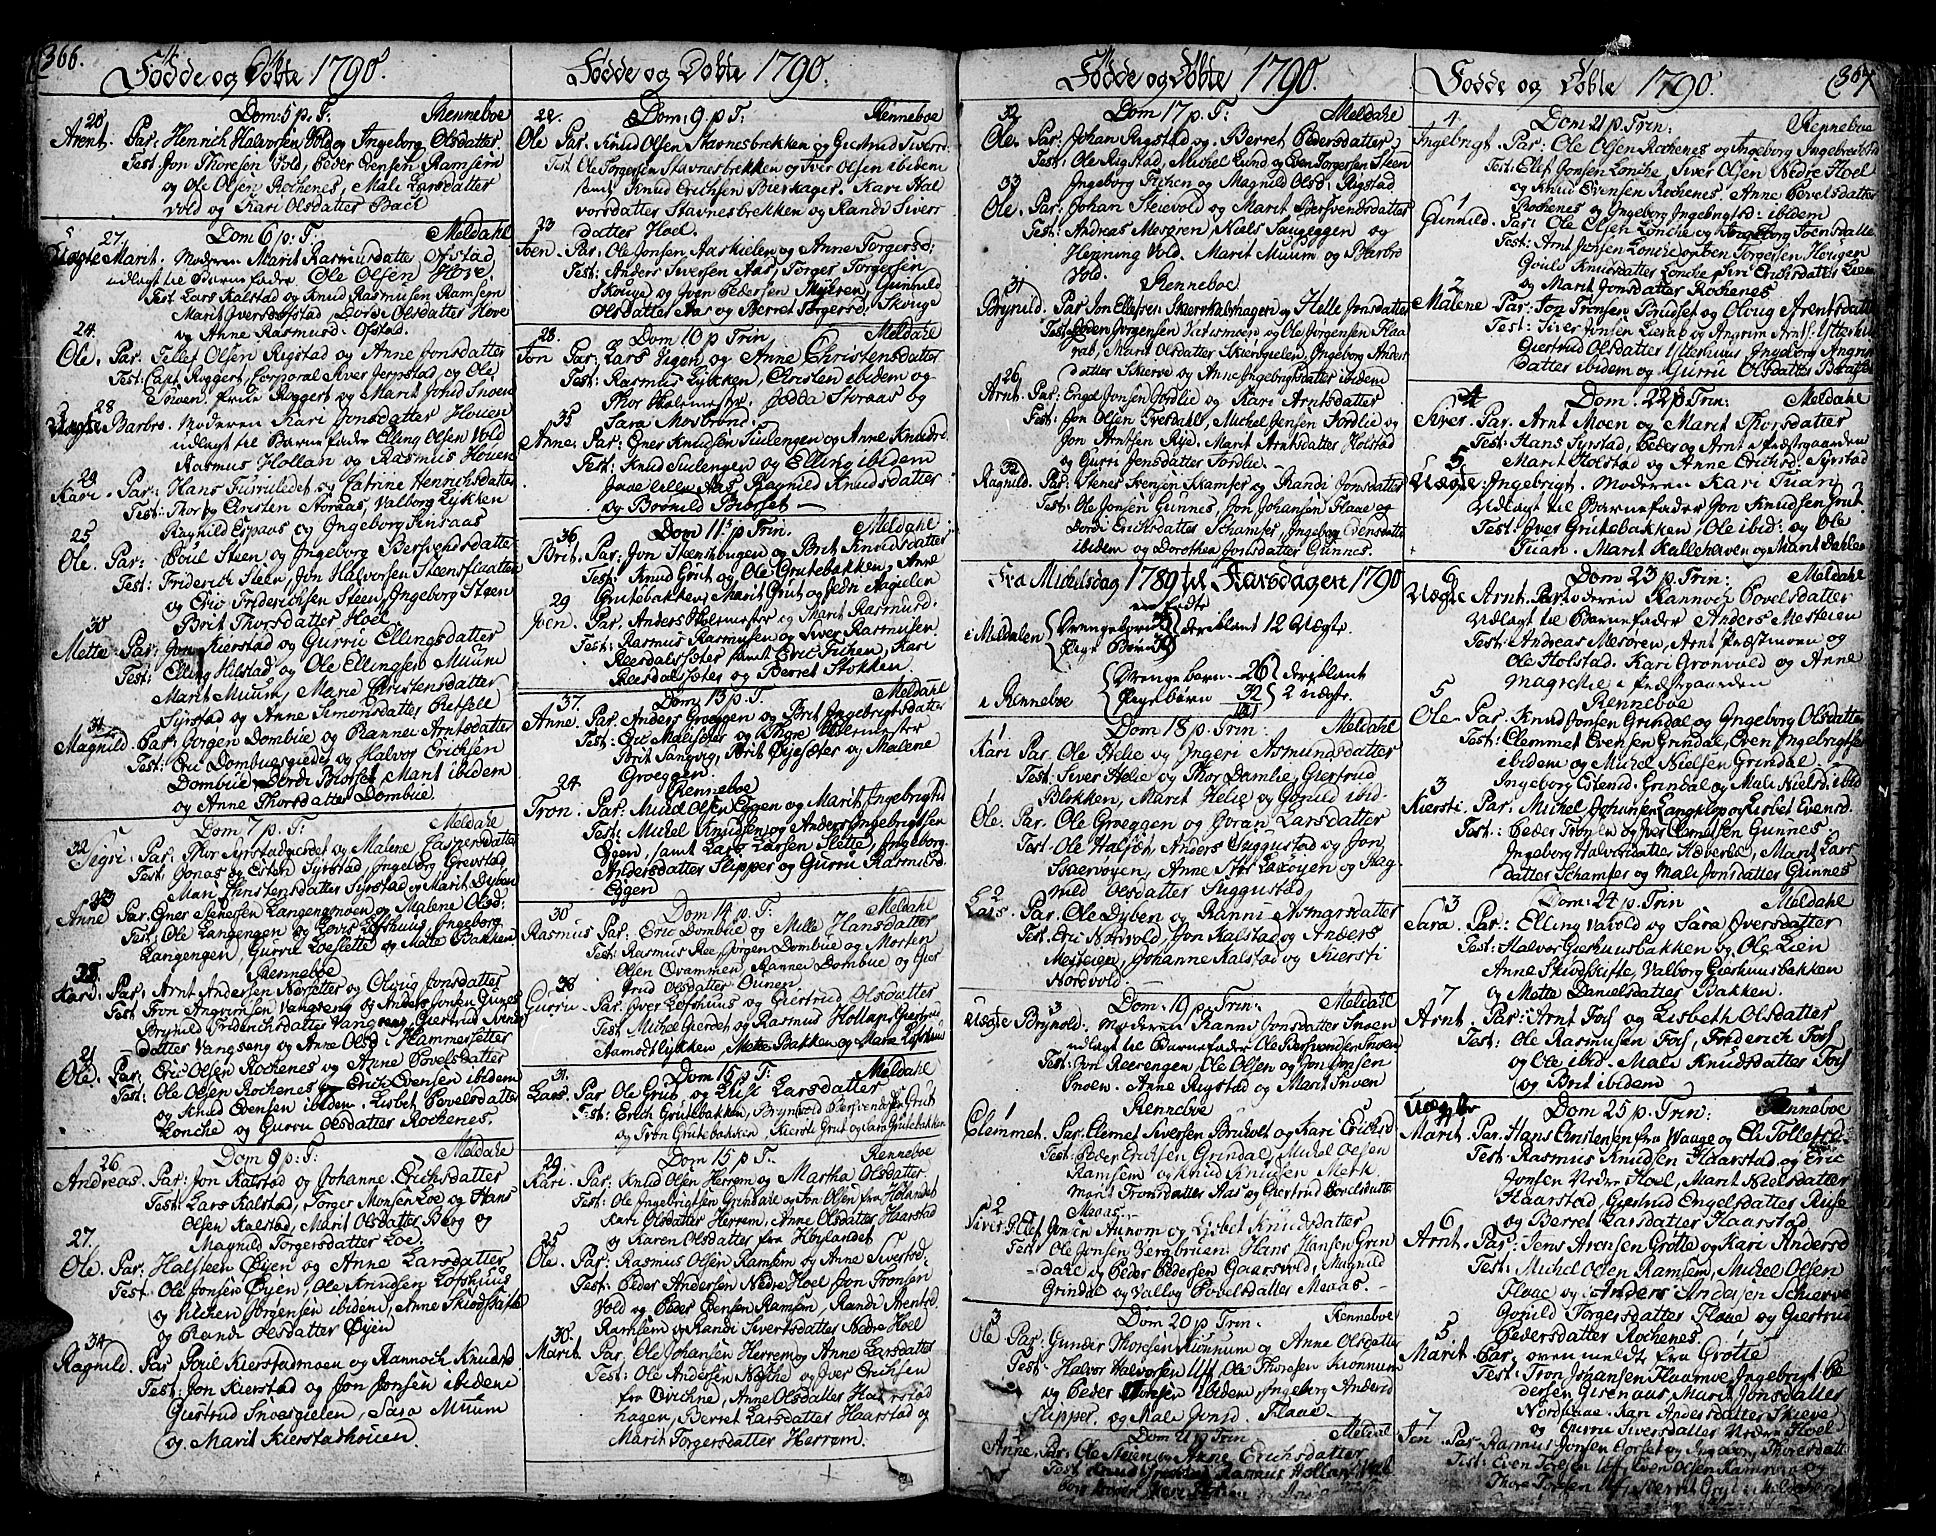 366.
Fødde og Døbte 1790.
20 Dom: 5 p. T. Renneboe
Arent. Par: Henrich Halvorsen Vold og Ingeborg Olsdatter
Test: Jon Thoresen Vold, Peder Evensen Ramsem
og Ole Olsen Rochenes, Mali Larsdatter
Vold og Kari Olsdatter Bach
27. Dom 6 p: T. Meldahl
Uægte Marit. Moderen Marit Rasmusdatter Ofstad
udlagt til Barnefader Ole Olsen Hove.
Test: Lars Kalstad og Knud Rasmusen Ramsem
Marit Iversd: Ofstad, Dordi Olsdatter Hove
og Anne Rasmusd: Ofstad.
24.
Ole. Par: Ellef Olsen Rigstad og Anne Jonsdatter
Test: Capt: Roggert, Corporal Siver Jerpstad og Ole
Snoen. Frue Roggert og Marit Johsd Snoen
28
Uægte Barbro. Moderen Kari Jonsdatter Houen
udlagt til Barnefader Elling Olsen Vold
Rasmus Hollan og Rasmus Houen
29
Kari. Par: Hans Fusruledet og Catrine Henrichsdatter
Test: Thor og Christen Storaas, Valborg Lykken
Ragnild Espaas og Ingeborg Finsaas
25
Ole. Par: Poul Steen og Ingeborg Bersvendsdatter
Test: Friderich Steen, Jon Halvorsen Steensflaatten
og Eric Friderichsen Steen, Ingeborg Stgen
Brit Thorsdatter Hoel
30
Mette. Par: Jon Kierstad og Gurru Ellingsdatter
Test: Elling Hilstad og Ole Ellingsen Muum
Marit Muum, Marie Christensdatter
Syrstad og Anne Simonsdatter
31
Magnild. Par: Jørgen Dombue og Rannei Arntsdatter
Test: Eric Dombuesgiedet og Halvor Erichsen
Dombue, Dordi Biorset, Marit ibidem
og Anne Thorsdatter Dombue
32 Dom 7 p: T: Meldahl
Sigri. Par: Thor Syrstadgierdet og Malene Caspersdatter
Test: Jonas og Esten Syrstad, Ingeborg Grevstad
Mari Finstensdatter Syrstad og Marit Dyben
33
Anne. Par: Ener Stenersen Langengmoen og Malene Olsd:
Test: Ole Langengen og Lovis Lofshuus, Ingeborg
Langengen, Gurru Loesette og Mette Bakken
Renneboe
Kari. Par: Arnt Andersen Nersetter og Oloug Jonsdatter
Test: Tron Angrimsen Vangseng og Anders Jonsen Gunnes
Brynild Frederichsdatter Vangseng, Giertrud Svends
datter Vangseng og Anne Olsd: Hammersetter
21
Ole. Par: Eric Olsen Rochenes og Anne Povelsdatter
Test: Ole Olsen Rochenes og Erich Evensen ibidem
og Knud Evensen ibidem. Lisbet Povelsdatter
Lonche og Gurru Olsdatter Rochenes.
26 Dom 8 p: T: Meldahl
Andreas. Par: Jon Kalstad og Johanne Erichsdatter
Test: Lars Kalstad, Torger Monsen Loe og Hans
Olsen Kalstad, Marit Olsdatter Berg og
Magnild Torgersdatter Loe.
27.
Ole. Par: Halsteen Øyen og Anne Larsdatter
Test: Ole Jonsen Øyen, Ole Knudsen Lofshuus
og Michen Jørgensen ibidem, Anne Skiodskifte
og Randi Olsdatter Øyen
34
Ragnild. Par Poul Kierstadmoen og Rannoch Knudsd
Test: Jon Kierstad og Jon Jonsen ibidem
Giestrud Snoesgielen, Sara Muum
og Marit Kierstadhouen.
Fødde og Døbte 1790.
22. Dom: 9 p T: Renneboe
Ole Par: Knud Olsen Stavnesbrekken og Giertrud Sivers:
Test: Ole Torgersen Stavnesbrekken og Iver Olsen ibidem
samt Knud Erichsen Bierkager. Kari Hal
vorsdatter Stavnesbrekken og Randi Sivers
datter Hoel.
23
Iven. Par: Ole Jonsen Aaskielen og Anne Torgersd:
Test: Anders Siversen Aas, Torger Torgersen
Skouge og Iven Pedersen Myhren, Gunnild
Olsdatter Aas og Berret Torgersd: Skouge
28. Dom 10 p Trin Meldahl
Jon Par: Lars Eigen og Anne Christensdatter
Test: Rasmus Lykken, Christen ibidem og
Thor Holemester. Jodda Storaas og
Sara Mosbrønd.
35
Anne. Par: Ener Knudsen Tuulengen og Anne Knudsd:
Test: Knud Tuulengen og Elling ibidem
Aas Ragnild Knudsdatter
og Borild Biorset
36 Dom 11 p Trin. Meldahl
Brit. Par. Jon Steensbugen og Brit Knudsdatter
Test: Knud Grut og Ole Grutebakken, Anne
Grutebakken, Marit Grut og Aagielen
29
Joen. Par. Anders Holemester og Marit Rasmusd:
Test: Rasmus Rasmusen og Siver Rasmusen
Reesdalssæter samt Eric Fichen, Kari
Reesdalsæter og Berret Stokken
37. Dom 13 p. T. Meldahl
Anne. Par. Anders Groeggen og Brit Ingebrigtsdatter
Test: Eric Malisæter og Thore Holemester
Brit Sangvig, Brit Øyesæter og Malene
Groeggen.
24 Renneboe
Tron. Par: Mud Olsen Eggen og Marit Ingebrigtsd
Test: Michel Knudsen og Anders Ingebrigtsen
Eggen samt Lars Larsen Slette, Ingeborg
Andersdatter Slipper og Gurru Rasmusd
Eggen
30 Dom 14 p: T: Meldahl
Rasmus Par: Eric Dombue og Mille Hansdatter
Test: Rasmus Ree, Jørgen Dombue og Morten
Olsen Qvammen, Rannei Dombue og Gier
trud Olsdatter Ounen.
38
Gurru. Par: Iver Lofshuus og Giertrud Olsdatter
Test: Michel Gierdet og Rasmus Hollan, Giertrud
Aamotslykken, Mette Bakken og Mara Lofshuus
31. Dom 15 p: T: Meldahl
Lars. Par Ole Grut og Elise Larsdatter
Test: Erich Grutebakken, Brynild Bersvendsen Grut
og Tron Grutebakken, Kiersti Grut og Sara Grutebakken
29. Dom 15 p T. Renneboe
Kari. Par: Knud Olsen Herrem og Martha Olsdatter
Test: Ole Ingebrigtsen Grindal og Jon Olsen fra Høilandet
Kari Olsdatter Herrem, Anne Olsdatter Haarstad
og Karen Olsdatter fra Høylandet
25
Ole. Par: Rasmus Olsen Ramsem og Anne Siversd:
Test: Peder Andersen Nedre Hoel Jon Tronsen
Vold og Peder Evensen Ramsem, Randi Arentsd
Ramsem og Randi Sivertsdatter Nedre Hoel
30.
Marit. Par: Ole Johansen Herrem og Anne Larsdatter
Test: Ole Andersen Næsthe og Iver Erichsen
fra Qvichne, Anne Olsdatter Haarstad
hagen, Berret Larsdatter Haarstad og
Marit Torgersdatter Herrem.
Fødde og Døbte 1790.
32 Dom 17 p: T: Meldahl
Ole. Par. Johan Rigstad og Berret Pedersdatter
Test: Ole Rigstad, Michel Lund og Even Torgersen Steen
Ingeborg Fichen og Magnild Olsd. Rigstad
33
Ole. Par: Johan Steievold og Marit Bersvendsdatter
Test: Andreas Mesøren, Niels Saugeggen og
Henning Vold. Marit Muum og Barbro
Vold.
31 Renneboe
Brynild. Par Jon Ellefsen Skierskalshagen og Helle Jonsdatter
Test: Peder Jorgensen Vintermoen og Ole Jorgensen Flaa
grat, Marit Olsdatter Skiengielen, Ingeborg Anders
datter Skierve og Anne Ingebrigtsdatter ibidem
26
Arnt. Par: Engel Jonsen Jordlie og Kari Arntsdatter
Test: Jon Olsen Tresdahl, Michel Jensen Jordlie og
Jon Arntsen Rye. Marit Arntsdatter Holstad
og Gurri Jensdatter Jordlie
32
Ragnild. Par. Stenes Svensen Skamfer og Randi Jonsdatter
Test: Ole Jonsen Gunnes, Jon Johansen Flaae og
Dordi Erichsdatter Schamfer, Ingeborg Evensdatter
ibidem og Dorothea Jonsdatter Gunnes.
Fra Michelsdag 1789 til Aarsdagen 1790
er Fødte
i Meldalen Drengeborn 38 Pige Born 39 deriblant 12 Uægte.
i Renneboe Drengeborn - 26 Pigebørn 32 deriblant 2 Uægte.
1 Dom 18 p: Trin: Meldahl
Kari Par. Ole Helie og Ingeri Asmundsdatter
Test: Siver Helie og Thor Damlie, Giertrud
Blokken, Marit Helie og Gogild ibid-
1
Ole. Par. Ole Groeggen og Goran Larsdatter
Test: Ole Haljær, Anders Suggustad og Jon
Skaervøyen, Anne Stor Laxøyen og Hag-
nild Olsdatter Suggustad
2
Lars. Par. Ole Dyben og Ranni Asmarsdatter
Test. Eric Nordvold, Jon Kalstad og Anders
Mesteien, Johanne Kalstad og Kiersti
Nordvold.
3 Dom: 19 p: Trin: Meldahl
Uægte Brynold. Moderen Ranne Jonsdatter Snoen
udlagt til Barnefader Ole Bersvendsen Snoen
Test: Jon Reerengen Ole Olsen og Jon Jonsen
Snoen. Anne Rigstad og Marit Snoen.
1 Renneboe
Clemmet. Par. Clemet Siversen Bruholt og Kari Ericksd
Test: Peder Ericksen Grindal, Michel Olsen
Ramsem og Knud Knudsen Merk,
Marit Tronsdatter Aas og Giertrud Povelsdatter
Meaas.
2
Siver. Par. Joen Jonsen Aunom og Lisbet Knudsdatter
Test. Ole Jonsen Bergbruen, Hans Hansen Grin
dahl og Peder Pedersen Gaarsvold, Magnild
Grindal og Vallog Povelsdatter Meaas.
3 Dom 20 p Trin. Renneboe
Ole Par. Gunder Thoresen Kronnum og Anne Olsdatter
Test: Halvor Halvorsen Uff, Ole Thoresen Kronnum
og Peder Thoresen ibidem, Ingeborg Andersd
Slipper. og Male Jonsd. Flaae.
Dom 21 p Trin. Meldal
Anne. Par. Ole Steien og Anne Erichsdatter
Test: Knud Rasmus Hollan
Fødde og Døbte 1790.
367
4. Dom 21 p. Trin: Renneboe
Ingebrigt. Par: Ole Olsen Rochenes og Ingeborg Ingebrigtsd
Test: Ellef Jonsen Lonche, Siver Olsen Nedre Hoel
og Knud Evensen Rochenes. Anne Povelsdatter
Rochenes og Ingeborg Ingebrigtsd: ibidem
1
Gunnild. Par: Ole Olsen Lonche og Ingeborg Iversdatter
Test: Arnt Jonsen Lonche og Iben Torgersen Hougen
Goule Knudsdatter Lonche, Siri Endresdatter
og Marit Jonsdatter Rochenes
2
Malene. Par: Jon Tronsen Budset og Oloug Arentsdatter
Test: Siver Jonsen Lierab og Angrim Arntsen Ytterhuus
Giertrud Olsdatter Ytterhuus Ingeborg Angrim
datter ibidem og Gurru Olsdatter
4 Dom: 22 p Trin: Meldahl
Siver Par. Arnt Moen og Marit Thorsdatter
Test: Hans Syrstad, Peder og Arnt i Præstgaarden
Marit Holstad og Anne Erichsd: Syrstad
5
Uægte. Ingebrigt. Moderen Kari Tuan
Udlagt til Barnefader Jon Knudsen Grut
Test: Iver Grutebakken, Ole ibid: og Ole
Tuan. Marit Kallehaven og Marit Dahlen
6 Dom 23 p. Trin: Meldahl
Uægte Arnt. Moderen Rannoch Povelsdatter
Udlagt til Barnefader Anders Mesteien
Test: Andreas Mesøren, Arnt Præstmoen og
Ole Holstad. Kari Grønvold og Anne
Magrethe i Præstgaarden
5 Renneboe
Ole. Par. Knud Jonsen Grindal og Ingeborg Olsdatter
Test: Clemmet Evensen Grindal, Even Ingebrigtsen
ibidem og Michel Nielsen Grindal.
Ingeborg Estensd: Grindal og Mali Nielsd: ibid
3
Kiersti Par: Michel Johansen Langklop og Lisbet Evensd.
Test: Peder Tronsen og Iver Clemetsen Gunnes
Ingeborg Halvorsdatter Hæverlie, Marit Lars
datter Schamfer og Mali Jonsdatter Gunnes
3 Dom: 24 p. Trin Meldahl
Sara. Par.: Elling Vavold og Sara Iversdatter
Test: Halvor Gierhuusbakken og Ole Lien
Anne Skiodskifte, Valborg Gierhuusbakken
og Mette Danielsdatter Bakken.
7
Arnt. Par: Arnt Fors og Lisbeth Olsdatter
Test: Ole Rasmusen Fors, Friderich Fors
og Ole ibid. Mali Knudsdatter Fors
og Brit ibidem
Uægte Dom 25 p: Trin: Renneboe
Marit. Par. Hans Christensen fra Vaage og Eli Tollefsd:
Test: Rasmus Knudsen Haarstad og Eric
Jonsen Nedre Hoel, Marit Nielsdatter
Haarstad, Giertrud Engelsdatter Ryse
og Berret Larsdatter Haarstad
6
Arnt. Par: Jens Arensen Grøtte og Kari Andersd
Test: Michel Olsen Ramsem, Michel Olsen
Flaae og Anders Andersen Schierve
Gogild Torgersdatter Flaae og Giertrud
Pedersdatter Rochenes
5.
Marit Par. ovenmeldt fra Grøtte
Test: Jon Johansen Flaamoe, Ingebrigt Pe
dersen Gisenaas Marit Jonsdatter
Nordskaae. Kari Andersdatter Skierve
og Gurru Siversdatter Nedre Hoel
7
Jen Par. Rasmus Jonsen Corset og Ingeborg Thoresdatter
Test: Even Toresen Uff, Even Olsen Ramsem og
Thore Toresen Uff, Berret Gryt i Meldahl